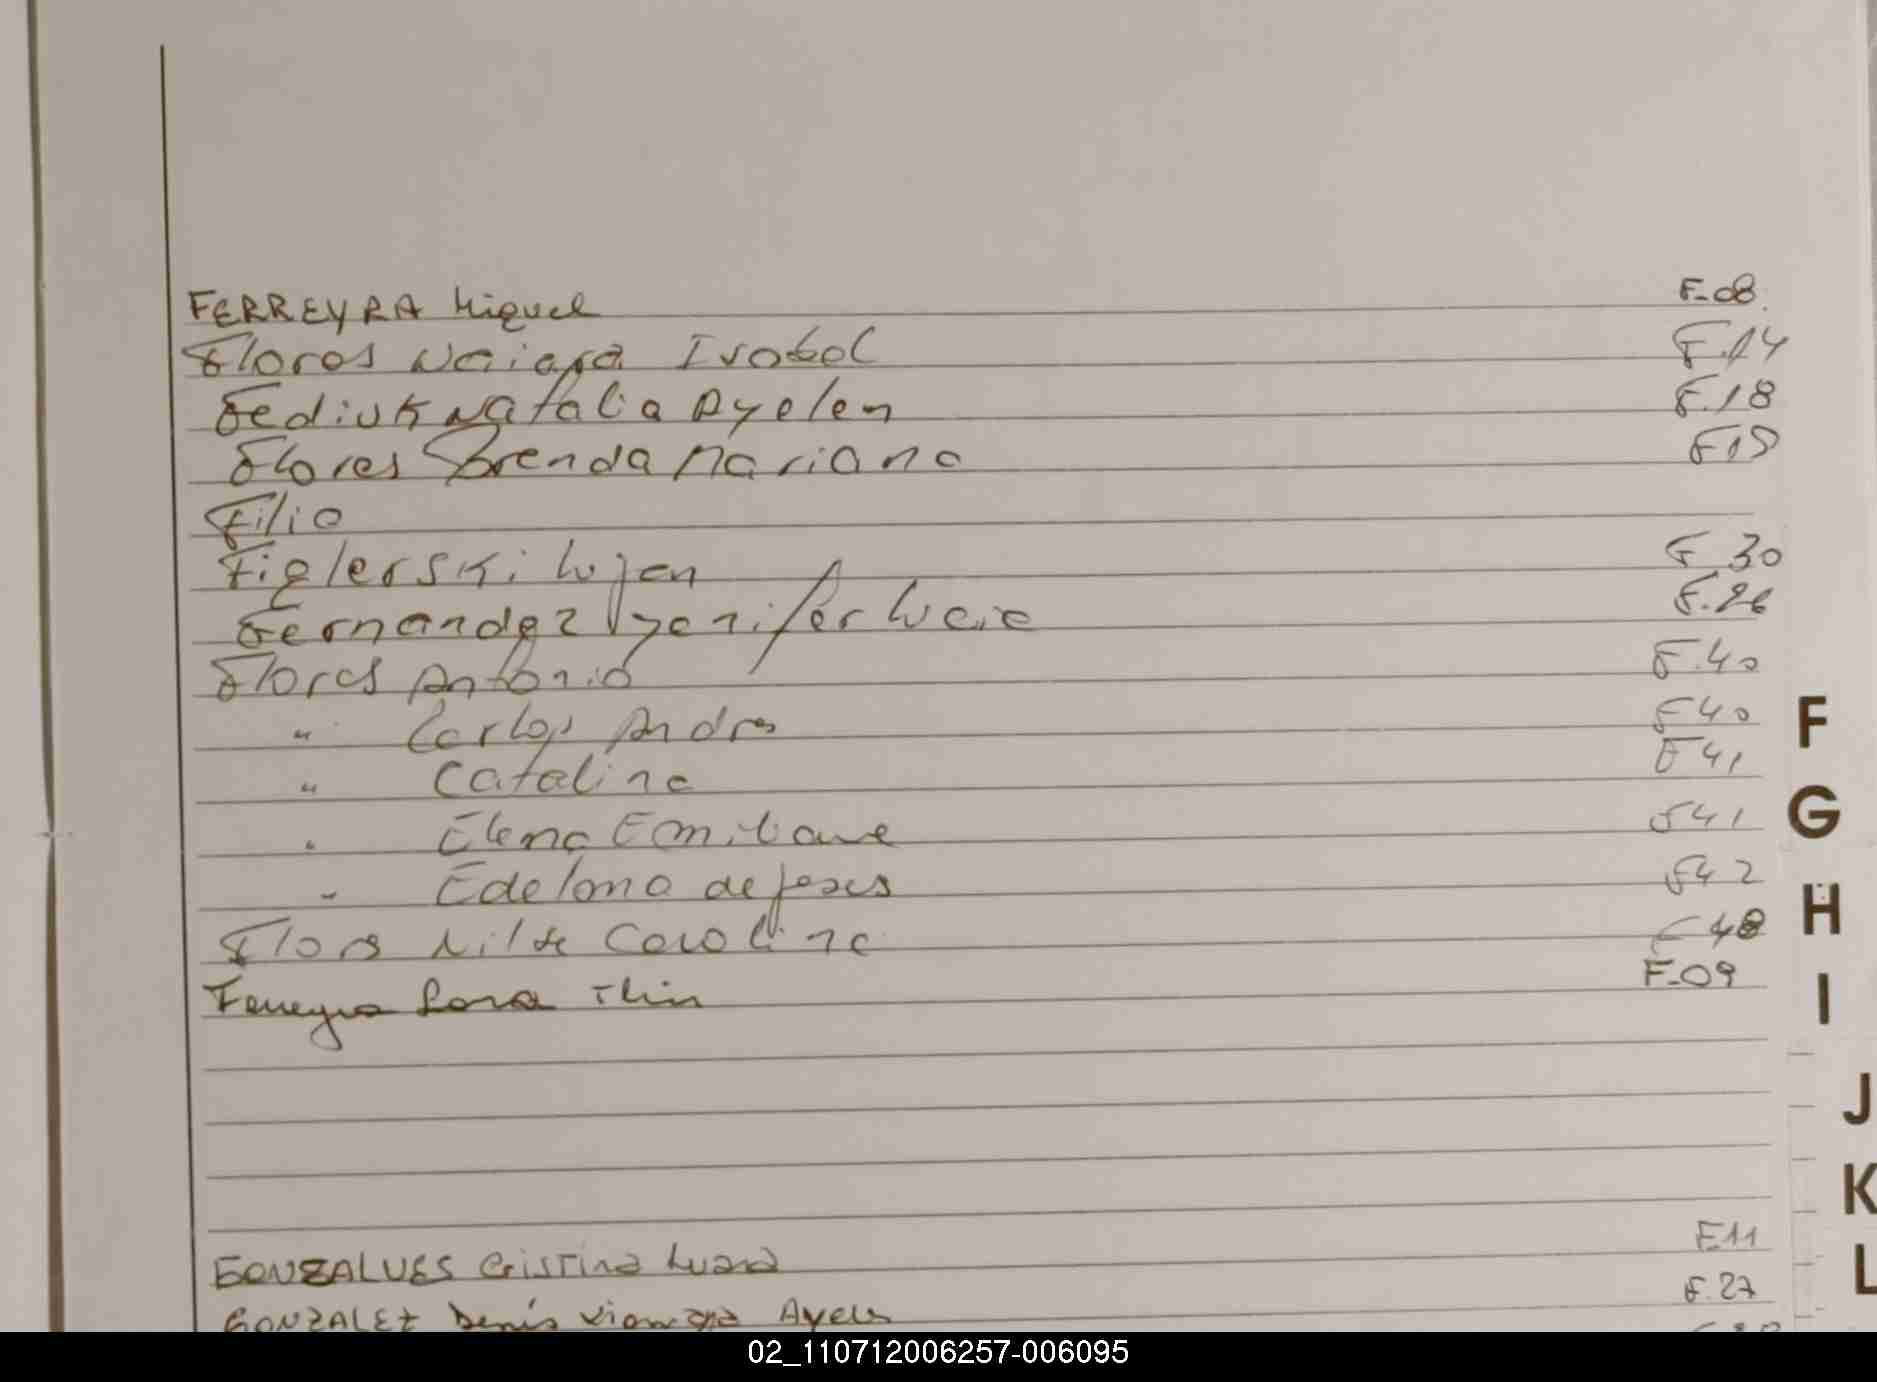 FERREYRA Miguel F-08
Flores Naiara Isabel F.14
Fediuk Natalia Ayelen F.18
Flores Brenda Mariana F19
Filio
Figlerski Lujan F 30
Fernandez Yenifer Lucia F.26
Flores Antonio F.40
" Carlos Andres F40
" Catalina F41
" Elena Emiliana F41
" Edelma de Jesus F42
Flores Nilda Carolina F 48
Ferreyra Lara F-09
GONZALVES Cristina Luana F.11
GONZALEZ Denis Ayelen F.27
F
G
H
I
J
K
L
02_110712006257-006095